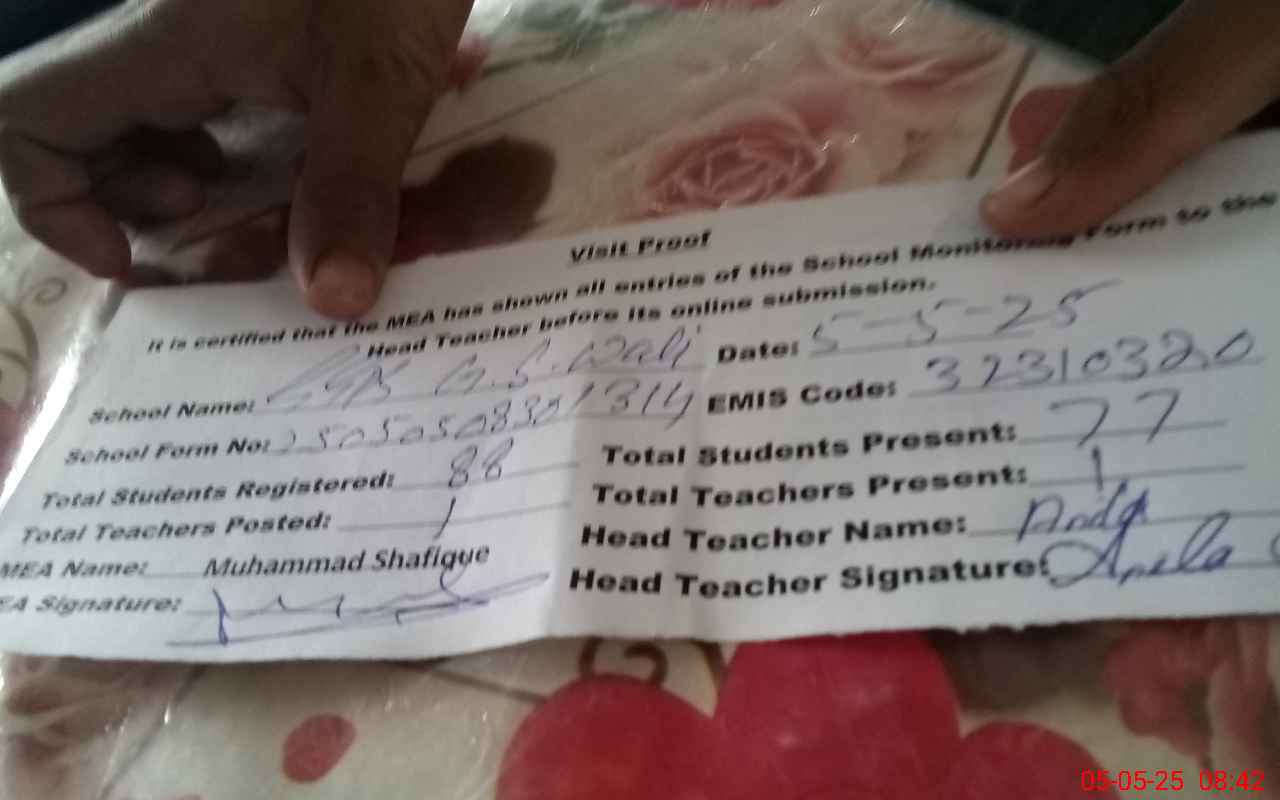 Visit Proof
It is certified that the MEA has shown all entries of the School Monitoring Form to the
Head Teacher before its online submission.
School Name: G.S. Wali Date: 5-5-25
School Form No: 25050508301314 EMIS Code: 32310320
Total Students Registered: 88 Total Students Present: 77
Total Teachers Posted: 1 Total Teachers Present: 1
MEA Name: Muhammad Shafique Head Teacher Name:
EA Signature: Head Teacher Signature: Anela
05-05-25 08:42